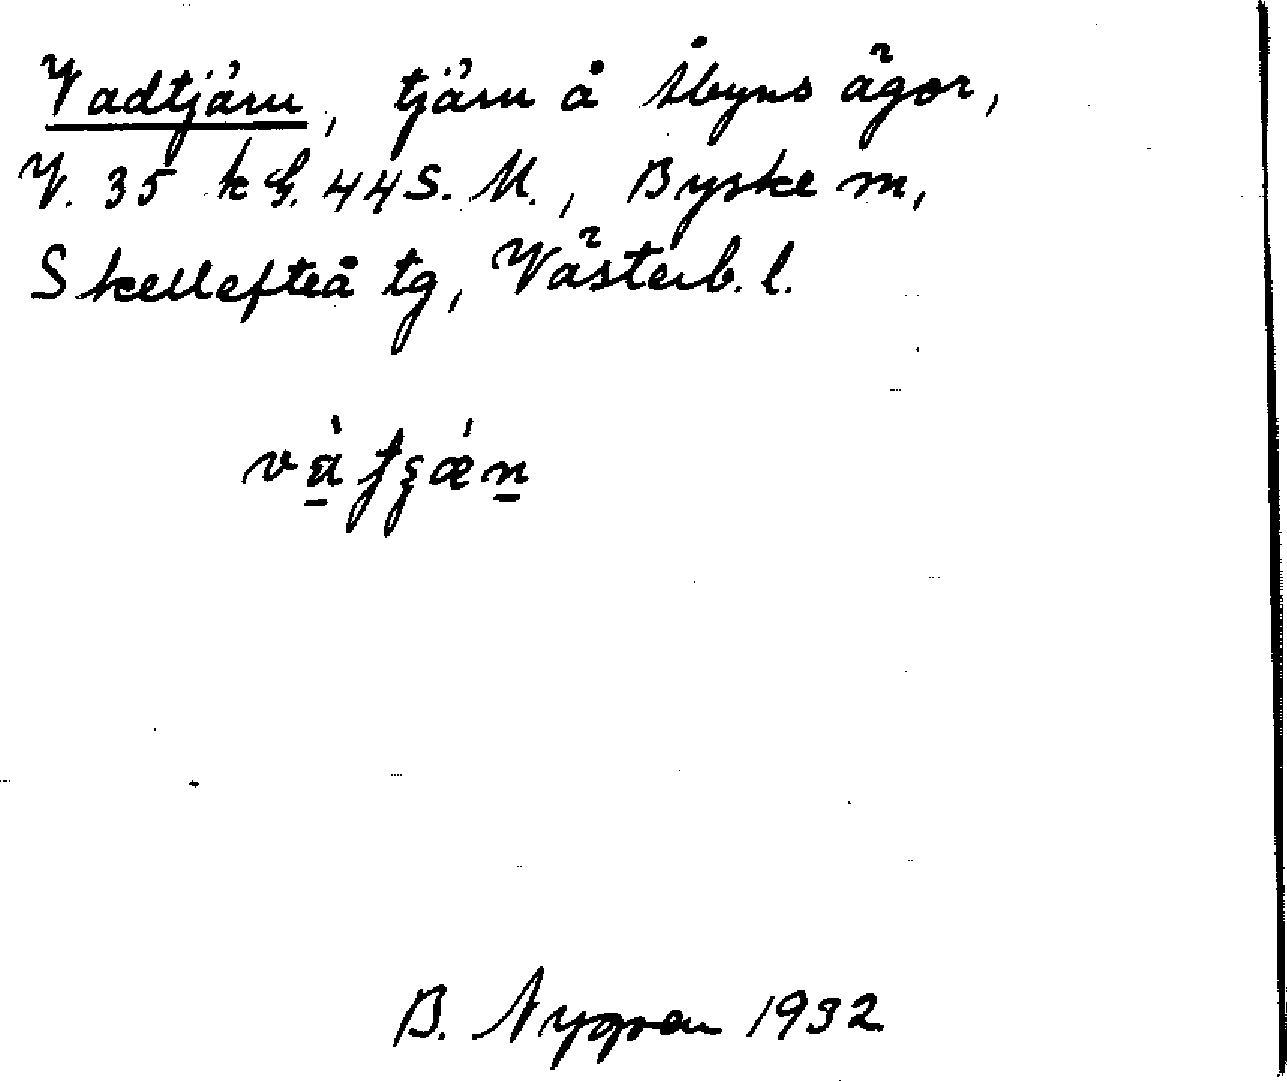 Vadtjärn, tjärn å Åbyns ägor,
V. 35 k G. 44 S. M., Byske sn,
Skellefteå tg, Västerb. l.
B. Nygren 1932